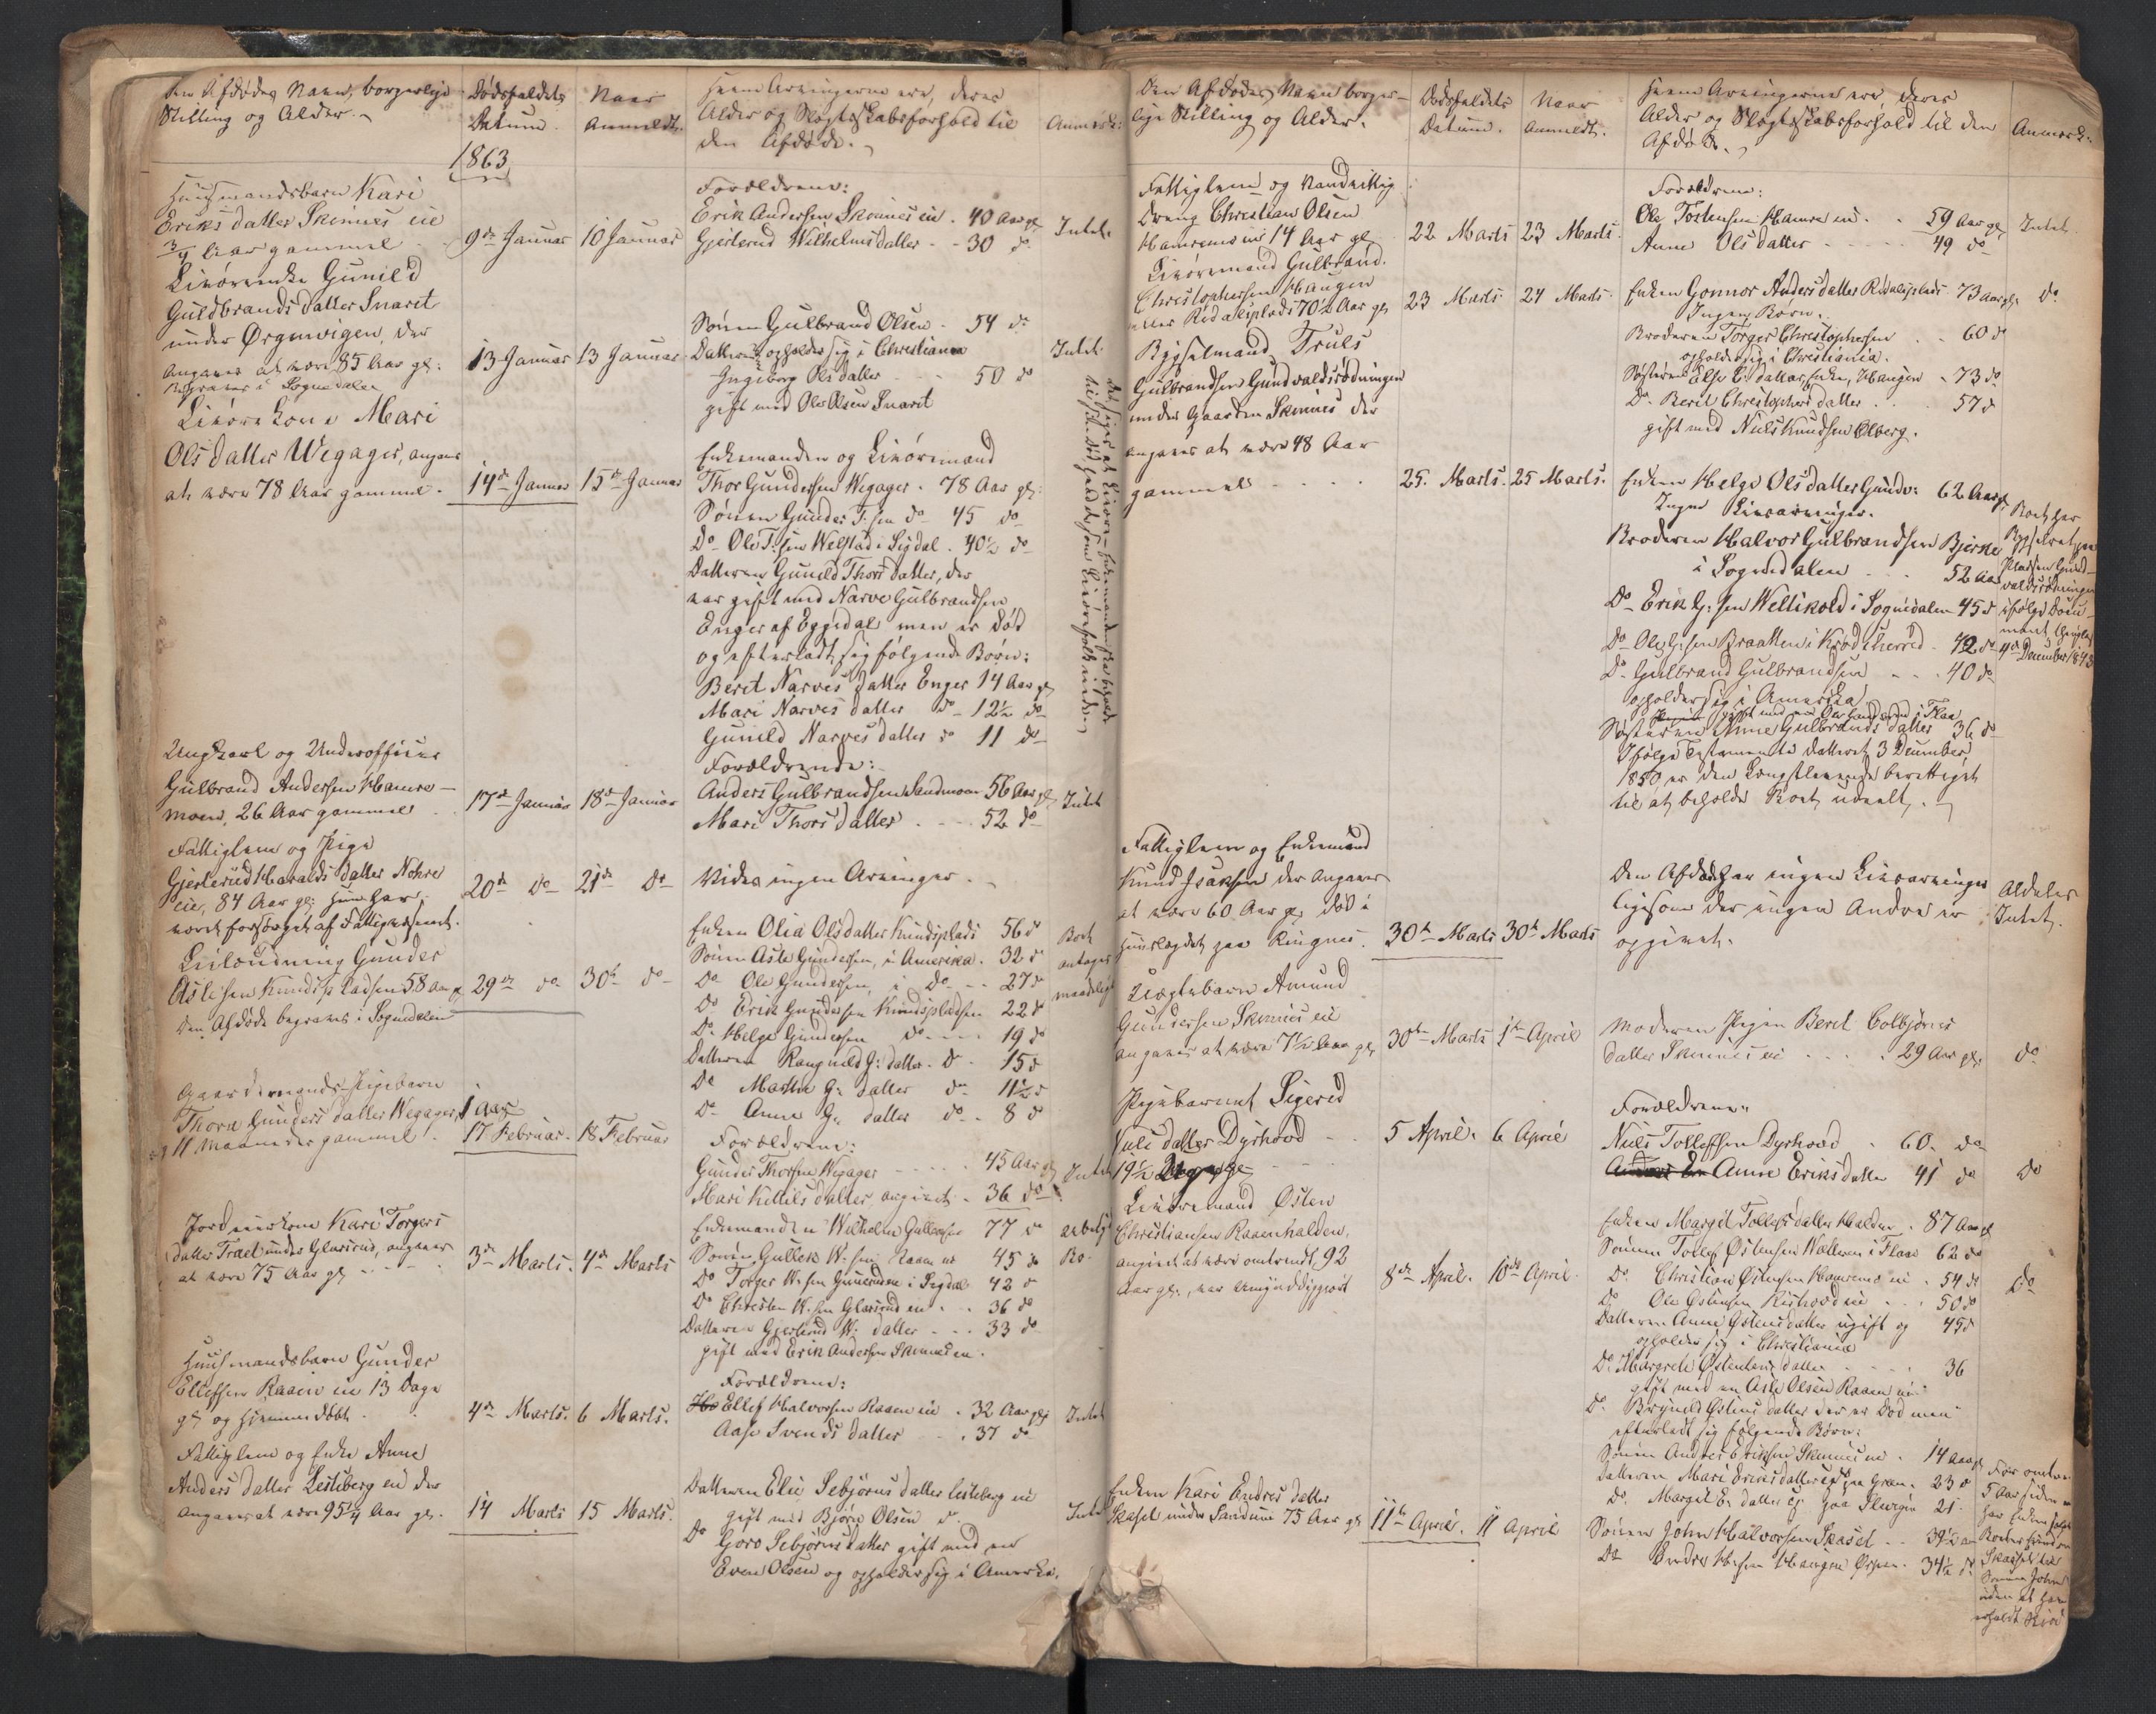 Den Afdødes Navn, borgerlige
Stilling og Alder.
Dødsfaldets
Datum.
Naar
Anmeldt.
Hvem Arvingerne ere, deres
Alder og Slægtskabsforhold til
den Afdøde.
Anmærk:
1863
Huusmandsbarn Kari
Eriksdatter Skinnes eie
3/4 Aar gammel
9de Januar
10 Januar
Forældrene:
Erik Andersen Skinnes eie . 40 Aar gl
Gjertrud Wilhelmsdatter - - 30 do
Intet
Livørenke Gunild
Guldbrandsdatter Snaret
under Ørgenvigen, der
angives at være 85 Aar gl:
Begraves i Sognedalen
13 Januar
13 Januar
Sønnen Gulbrand Olsen - 54 do
Datteren opholder sig i Christiania
Ingeborg Olsdatter - - 50 do
gift med Ole Olsen Snaret
Intet
Livørekone Mari
Olsdatter Wegager, angives
at være 78 Aar gammel.
14de Januar
15de Januar
Enkemanden og Livøremand
Thor Gundersen Wegager . 78 Aar gl:
Sønnen Gunder T:sen do 45 do
Do Ole T:sen Welstad i Sigdal . 40½ do
Datteren Gunild Thorsdatter, der
var gift med Narve Gulbrandsen
Enger af Eggedal men er død
og efterladt sig følgende Børn:
Berit Narvesdatter Enger 14 Aar gl
Mari Narvesdatter do 12½ do
Gunild Narvesdatter do 11 do
Ungkarl og Underofficer
Gulbrand Andersen Hamre-
moen, 26 Aar gammel
17de Januar
18de Januar
Forældrene:
Anders Gulbrandsen Sandmoen 56 Aar gl
Mari Thorsdatter . - - 52 do
Intet
Fattiglem og Pige
Gjertrud Haraldsdatter Nohre
eie, 84 Aar gl: hun har
været forsørget af Fattigvæsenet.
20de do
21de do
Vides ingen Arvinger.
Leilænding Gunder
Aslesen Knudspladsen 58 Aar gl
Den Afdøde begraves i Sognedalen
29de do
30te do
Enken Olia Olsdatter Knudsplads 56 do
Sønnen Asle Gundersen, i Amerika . 32 do
Do Ole Gundersen, i do - - 27 do
Do Erik Gundersen Knudspladsen 22 do
Do Helge Gundersen do - - 19 do
Datteren Rangnild G: datter . do 15 do
Do Marthe G: datter do 11½ do
Do Anne G: datter do - 8 do
Boet
antages
maadeligt
Gaardmands Pigebarn
Thora Gundersdatter Wegager, 1 Aar
og 11 Maaneder gammel.
17 Februar
18 Februar
Forældrene:
Gunder Thorsen Wegager - - - 45 Aar gl
Mari Kittilsdatter, angivet - 36 do
Intet
Jordeierkone Kari Torgers
datter Traet under Glæsrud, angives
at være 75 Aar gl
3de Marts.
4de Marts
Enkemanden Wilhelm Gulleksen 77 do
Sønnen Gullek W:sen Raaen eie 45 do
Do Torger W:sen Gunerud i Sigdal 42 do
Do Christen W:sen Glæsrud eie . . 36 do
Datteren Gjertrud W: datter - - - 33 do
gift med Erik Andersen Skinneseie.
Huusmandsbarn Gunder
Ellefsen Raaen eie 13 Dage
gl, og hjemmedøbt.
4de Marts.
6 Marts.
Forældrene:
Ellef Halvorsen Raaen eie . 32 Aar gl
Aase Svendsdatter - . 37 do
Intet
Fattiglem og Enke Anne
Andersdatter Lesteberg eie der
angives at være 95¼ Aar gl.
14 Marts
15 Marts.
Datteren Elie Sebjørnsdatter Lesteberg eie
gift med Bjørn Olsen do
Do Goro Sebjørnsdatter gift med en
Even Olsen og opholder sig i Amerika.
Intet
Den Afdødes Navn borger-
lige Stilling og Alder.
Dødsfaldets
Datum.
Naar
Anmeldt.
Hvem Arvingerne ere, deres
Alder og Slægtskabsforhold til den
Afdøde.
Anmærk:
Fattiglem og Vandvittig
Dreng Christian Olsen
Hamremoeie 14 Aar gl
22 Marts
23 Marts.
Forældrene:
Ole Tostensen Hamre eie . . 59 Aar gl
Anne Olsdatter - - - 49 do
Intet
Livøremand Gulbrand
Christophersen Haugen
eller Redalsplads 70½ Aar gl
23 Marts
24 Marts
Enken Gonnor Andersdatter Redalsplads . 73 Aar gl.
Ingen Børn.
Broderen Torger Christophersen . . 60 do
opholder sig i Christiania.
Søsteren Else C:datter, Enke, Haugen - 73 do
Do Berit Christophersdatter . . 57 do
gift med Niels Knudsen Elberg.
do
Bygselmand Truls
Gulbrandsen Gundvaldsrødningen
under Gaarden Skinnes der
angives at være 48 Aar
gammel
25. Marts.
25 Marts.
Enken Helge Olsdatter Gundv: 62 Aar gl.
Ingen Livsarvinger.
Broderen Halvor Gulbrandsen Bjerke
i Sognedalen . . . 52 Aar
Do Erik G:sen Wellikold i Sognedalen 45 do
Do Ole G:sen Braatten i Krødsherred - 42 do
Do Gulbrand Gulbrandsen - - - 40 do
opholder sig i Amerika
gift med i Flaa
Søsteren Anne Gulbrandsdatter 36 do
Ifølge Testamente dateret 3 December
1850, er den Længstlevende berettiget
til at beholde Boet udeelt.
Boet har
Bygselret paa
Pladsen Gund-
valdsrødningen
ifølge Docu-
ment thinglæst
4de December 1843
Fattiglem og Enkemand
Knud Isaksen der angives
at være 60 Aar gl, død i
huuslægdet paa Ringnes.
30te Marts
30te Marts
Den Afdøde har ingen Livsarvinger
ligesom der ingen Andre er
opgivet.
Aldeles
Intet.
Uægtebarn Amund
Gundersen Skinnes eie
angives at være 7½ Aar gl,
30te Marts
1ste April
Moderen Pigen Berit Colbjørns
datter Skinnes eie . . . . 29 Aar gl.
do
Pigebarnet Sigrid
Nielsdatter Dyrhoed
19½
5 April.
6 April
Forældrene:
Niels Tollefsen Dyrhoed . 60. do
Anne Eriksdatter 41 do
do
Livøremand Østen
Christiansen Raaenhalden,
angivet at være omtrendt 92
Aar gl.,
8de April.
10de April.
Enken Margit Tollefsdatter Halden . 87 Aar gl
Sønnen Tollef Østensen Wælleren i Flaa 62 do
Do Christian Østensen Hamremo eie . 54 do
Do Ole Østensen eie . . . 50 do
Datteren Anne Østensdatter ugift og 45 do
opholder sig i Christiania
Do Margrete Østensdatter - - - 36
gift med en Asle Olsen Raaen eie
Do Brynild Østensdatter der er død men
efterladt sig følgende Børn:
Sønnen Anders Eriksen Skinnes eie . 14 Aar gl
Datteren Mari Eriksdatter paa Gren . 23 do
Do Margit E: datter paa 21.
do
Enken Kari Endresdatter
Skaset under Sandum 75 Aar gl
11te April.
11 April
Sønnen John Halvorsen Skaset . . 39½ do
Do Endre H:sen Haugen Ørpen . 34½ do
For omtrent
5 Aar siden
har Enken
Boets
Skaset til
Sønnen John
uden at have
erholdt Skiøde